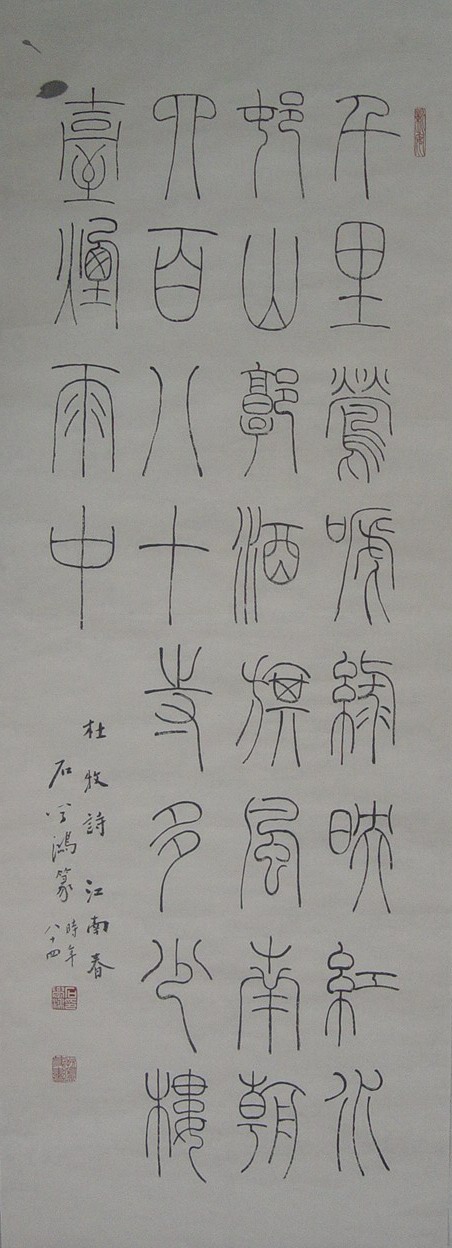 千里鶯啼綠映紅水
邨山郭酒旗風南朝
四百八十寺多少樓
臺煙雨中
杜牧詩 江南春
石 鴻篆 時年
八十四